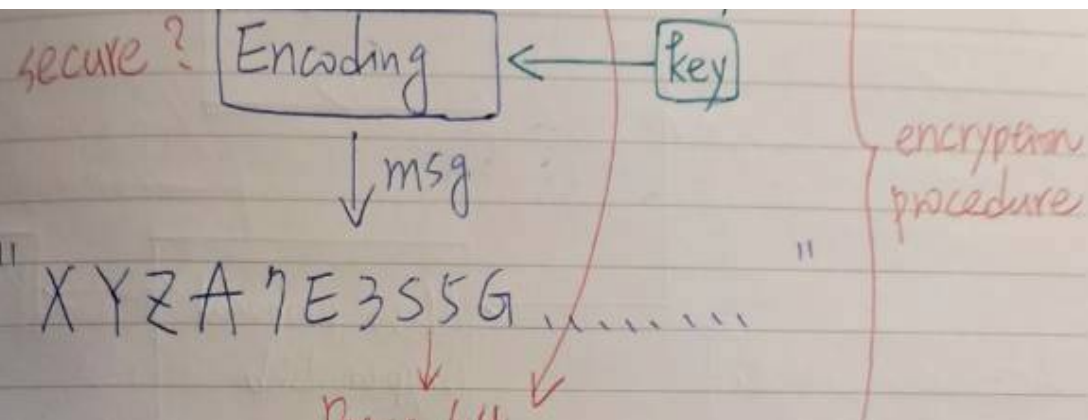 secure ?
Encoding
key
msg
encryption
procedure
" XYZA7E3S5G ........ "